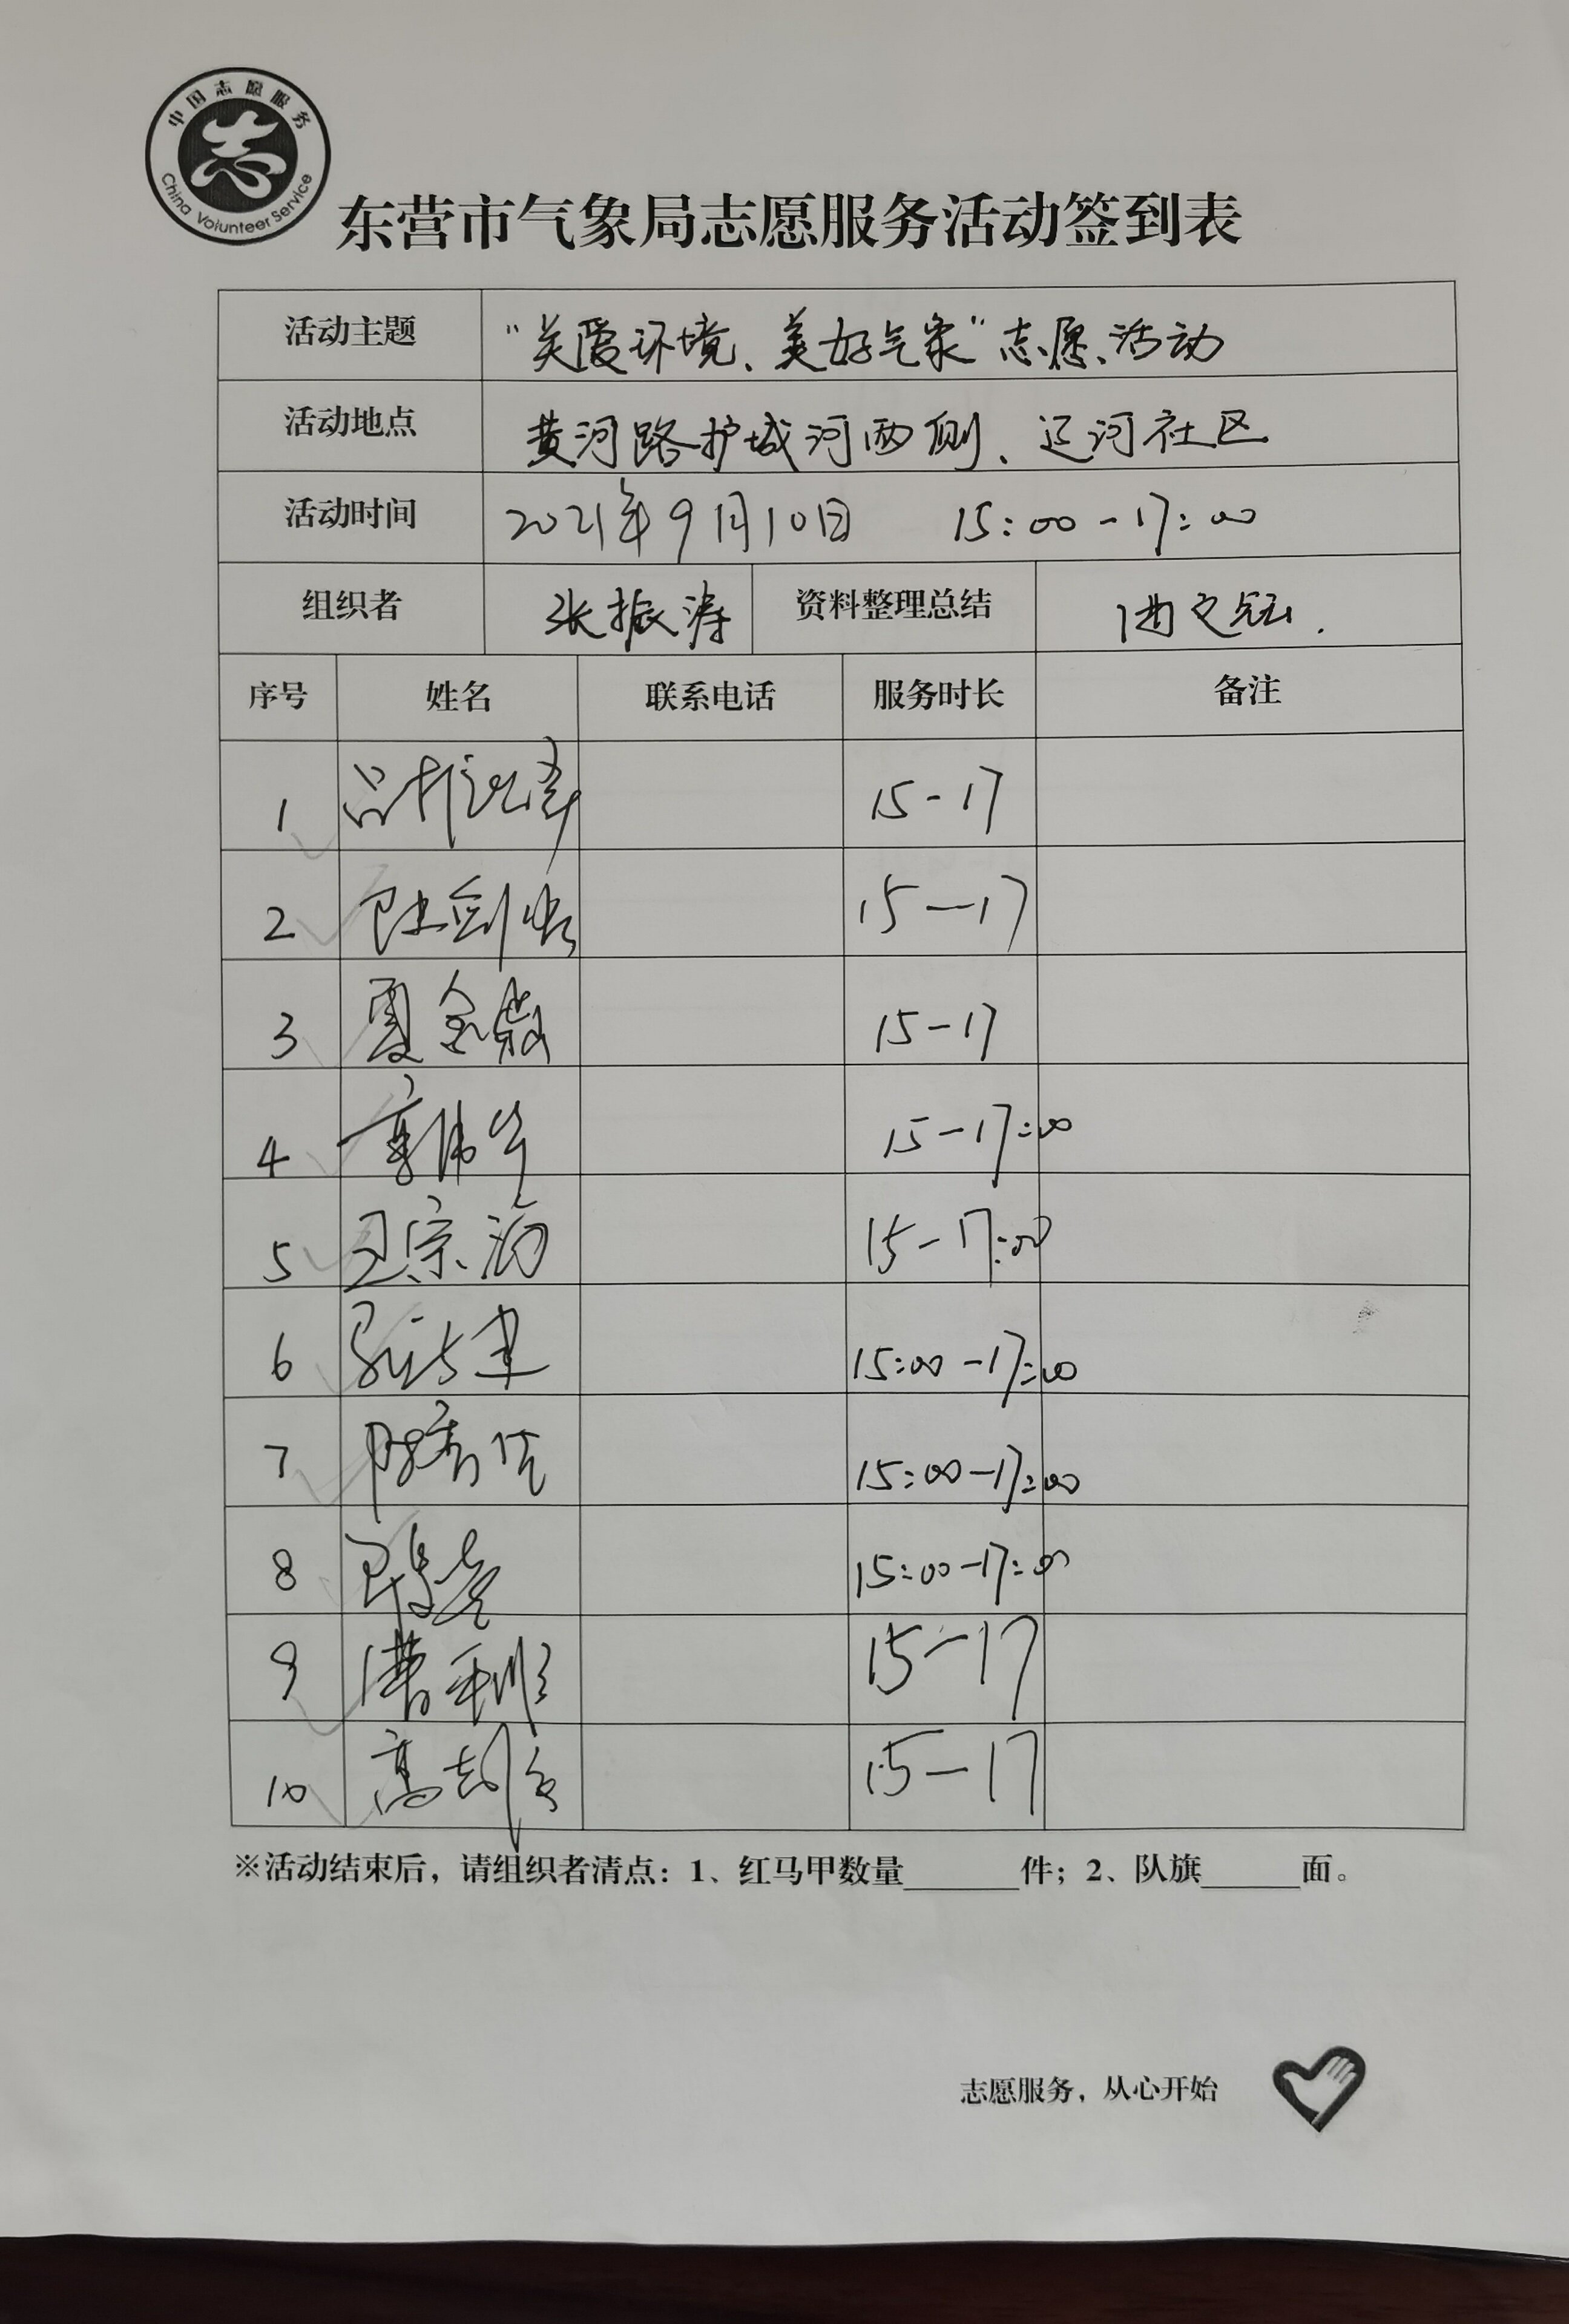 中国志愿服务
China Volunteer Service
东营市气象局志愿服务活动签到表
活动主题 “关爱环境、美好气象”志愿活动
活动地点 黄河路护城河两侧、辽河社区
活动时间 2021年9月10日 15:00-17:00
组织者 张振涛 资料整理总结
序号 姓名 联系电话 服务时长 备注
1 15-17
2 15-17
3 夏金 15-17
4 15-17:00
5 宗 15-17:00
6 15:00-17:00
7 15:00-17:00
8 15:00-17:00
9 15-17
10 高 15-17
※活动结束后，请组织者清点：1、红马甲数量______件；2、队旗_____面。
志愿服务，从心开始